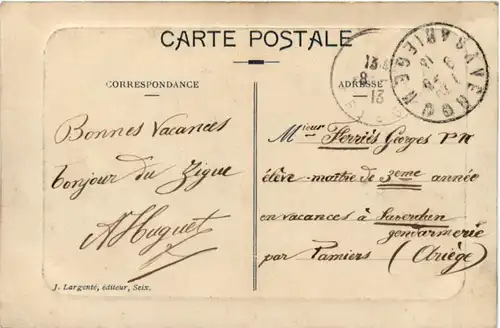 CARTE POSTALE
CORRESPONDANCE
Bonnes Vacances
bonjour du Zigue
AHuguet
J. Largenté, éditeur, Seix.
ADRESSE
Mieur Ferriès Georges
élève-maître de 3ème année
en vacances à Saverdun
gendarmerie
par Pamiers (Ariège)
13
8
13